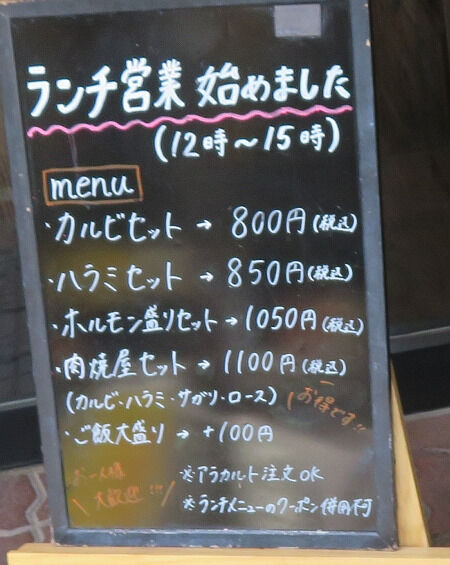 ランチ営業 始めました
(12時～15時)
menu
・カルビセット → 800円(税込)
・ハラミセット → 850円(税込)
・ホルモン盛りセット → 1050円(税込)
・肉焼屋セット → 1100円(税込)
(カルビ・ハラミ・サガリ・ロース)
お得です!!
・ご飯大盛り → +100円
お一人様
大歓迎!!!
※アラカルト注文OK
※ランチメニューのクーポン併用不可